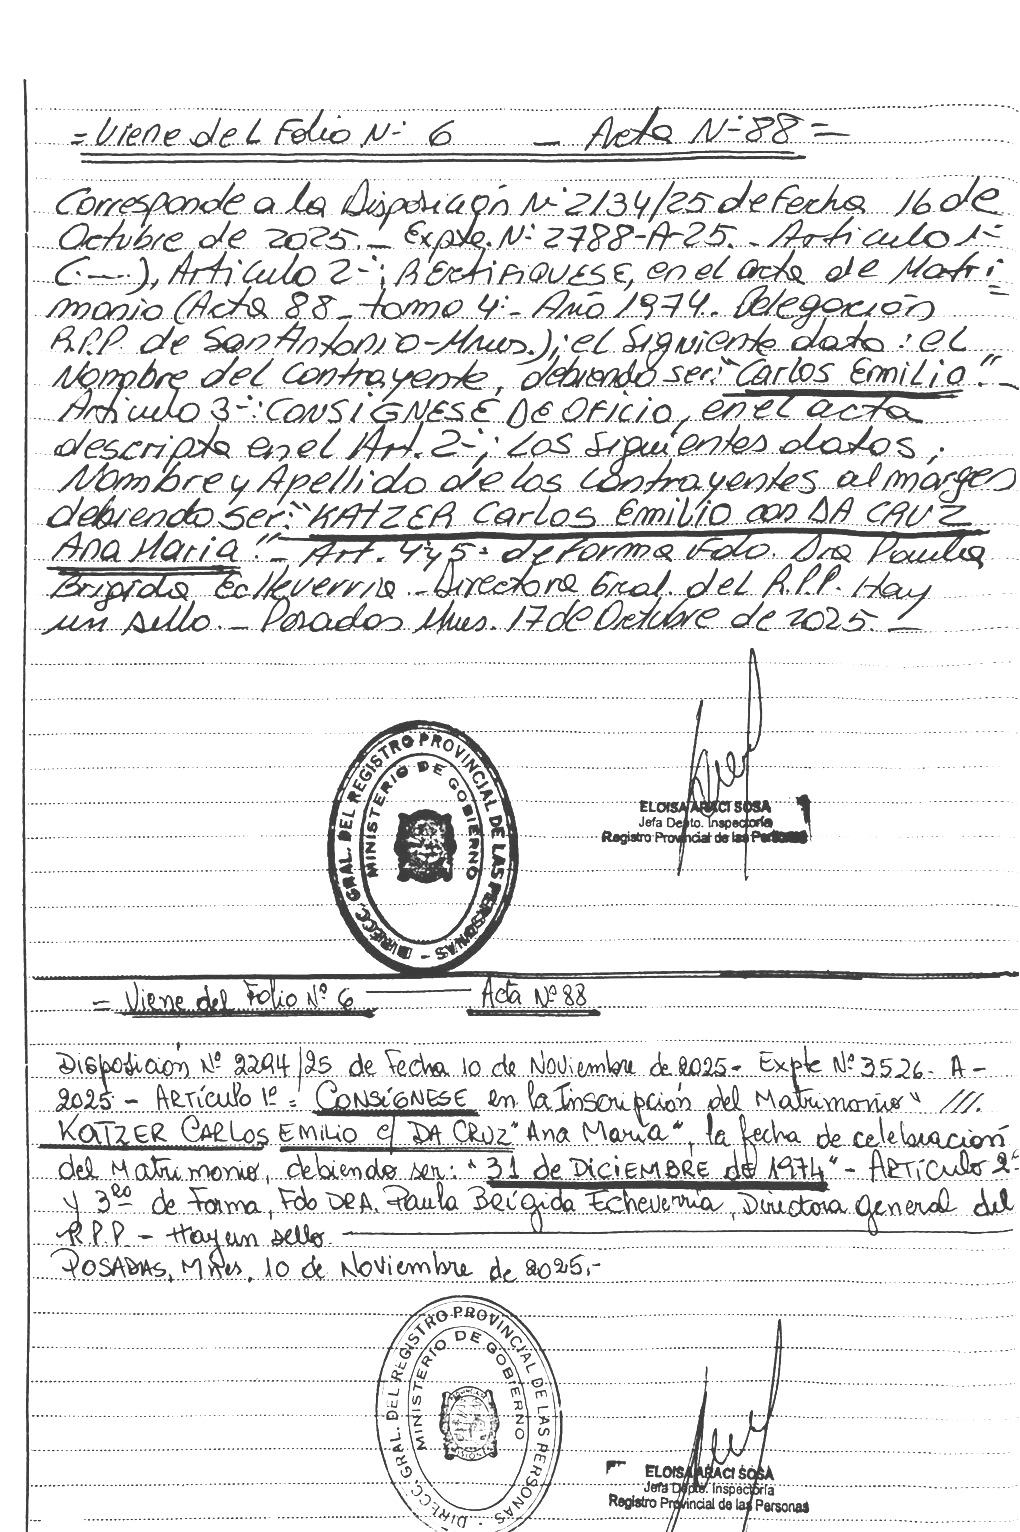 = Viene del Folio Nº 6 — Acta Nº 88 =
Corresponde a la Disposición Nº 2134/25 de Fecha 16 de
Octubre de 2025.- Expte. Nº 2788-A-25.- Artículo 1º
(.—.), Artículo 2º: RECTIFIQUESE, en el acta de Matri
monio (Acta 88 - tomo 4º - Año 1974. Delegación
R.P.P. de San Antonio-Mnes.); el siguiente dato: el
Nombre del contrayente, debiendo ser: "Carlos Emilio".-
Artículo 3º: CONSIGNESE DE OFICIO, en el acta
descripta en el Art. 2º; Los siguientes datos;
Nombre y Apellido de los contrayentes al margen
debiendo ser: "KATZER Carlos Emilio con DA CRUZ
Ana Maria".- Art. 4 y 5º de forma Fdo. Dra Paula
Brigida Echeverria.- Directora Gral. del R.P.P. Hay
un sello.- Posadas Mnes. 17 de Octubre de 2025.-
DIRECC. GRAL. DEL REGISTRO PROVINCIAL DE LAS PERSONAS -
MINISTERIO DE GOBIERNO
ELOISA ARACI SOSA
Jefa Depto. Inspectoría
Registro Provincial de las Personas
= Viene del Folio Nº 6 — Acta Nº 88
Disposición Nº 2294/25 de Fecha 10 de Noviembre de 2025- Expte Nº 3526- A-
2025 - ARTÍCULO 1º = CONSÍGNESE en la Inscripción del Matrimonio " ///.
KATZER CARLOS EMILIO c/ DA CRUZ "Ana María", la fecha de celebración
del Matrimonio, debiendo ser: "31 de DICIEMBRE de 1974"- ARTÍCULO 2º
y 3ro de Forma, Fdo DRA. Paula Brígida Echeverría, Directora general del
R.P.P - Hay un sello.
POSADAS, Mnes, 10 de Noviembre de 2025.-
DIRECC. GRAL. DEL REGISTRO PROVINCIAL DE LAS PERSONAS -
MINISTERIO DE GOBIERNO
ELOISA ARACI SOSA
Jefa Depto. Inspectoría
Registro Provincial de las Personas